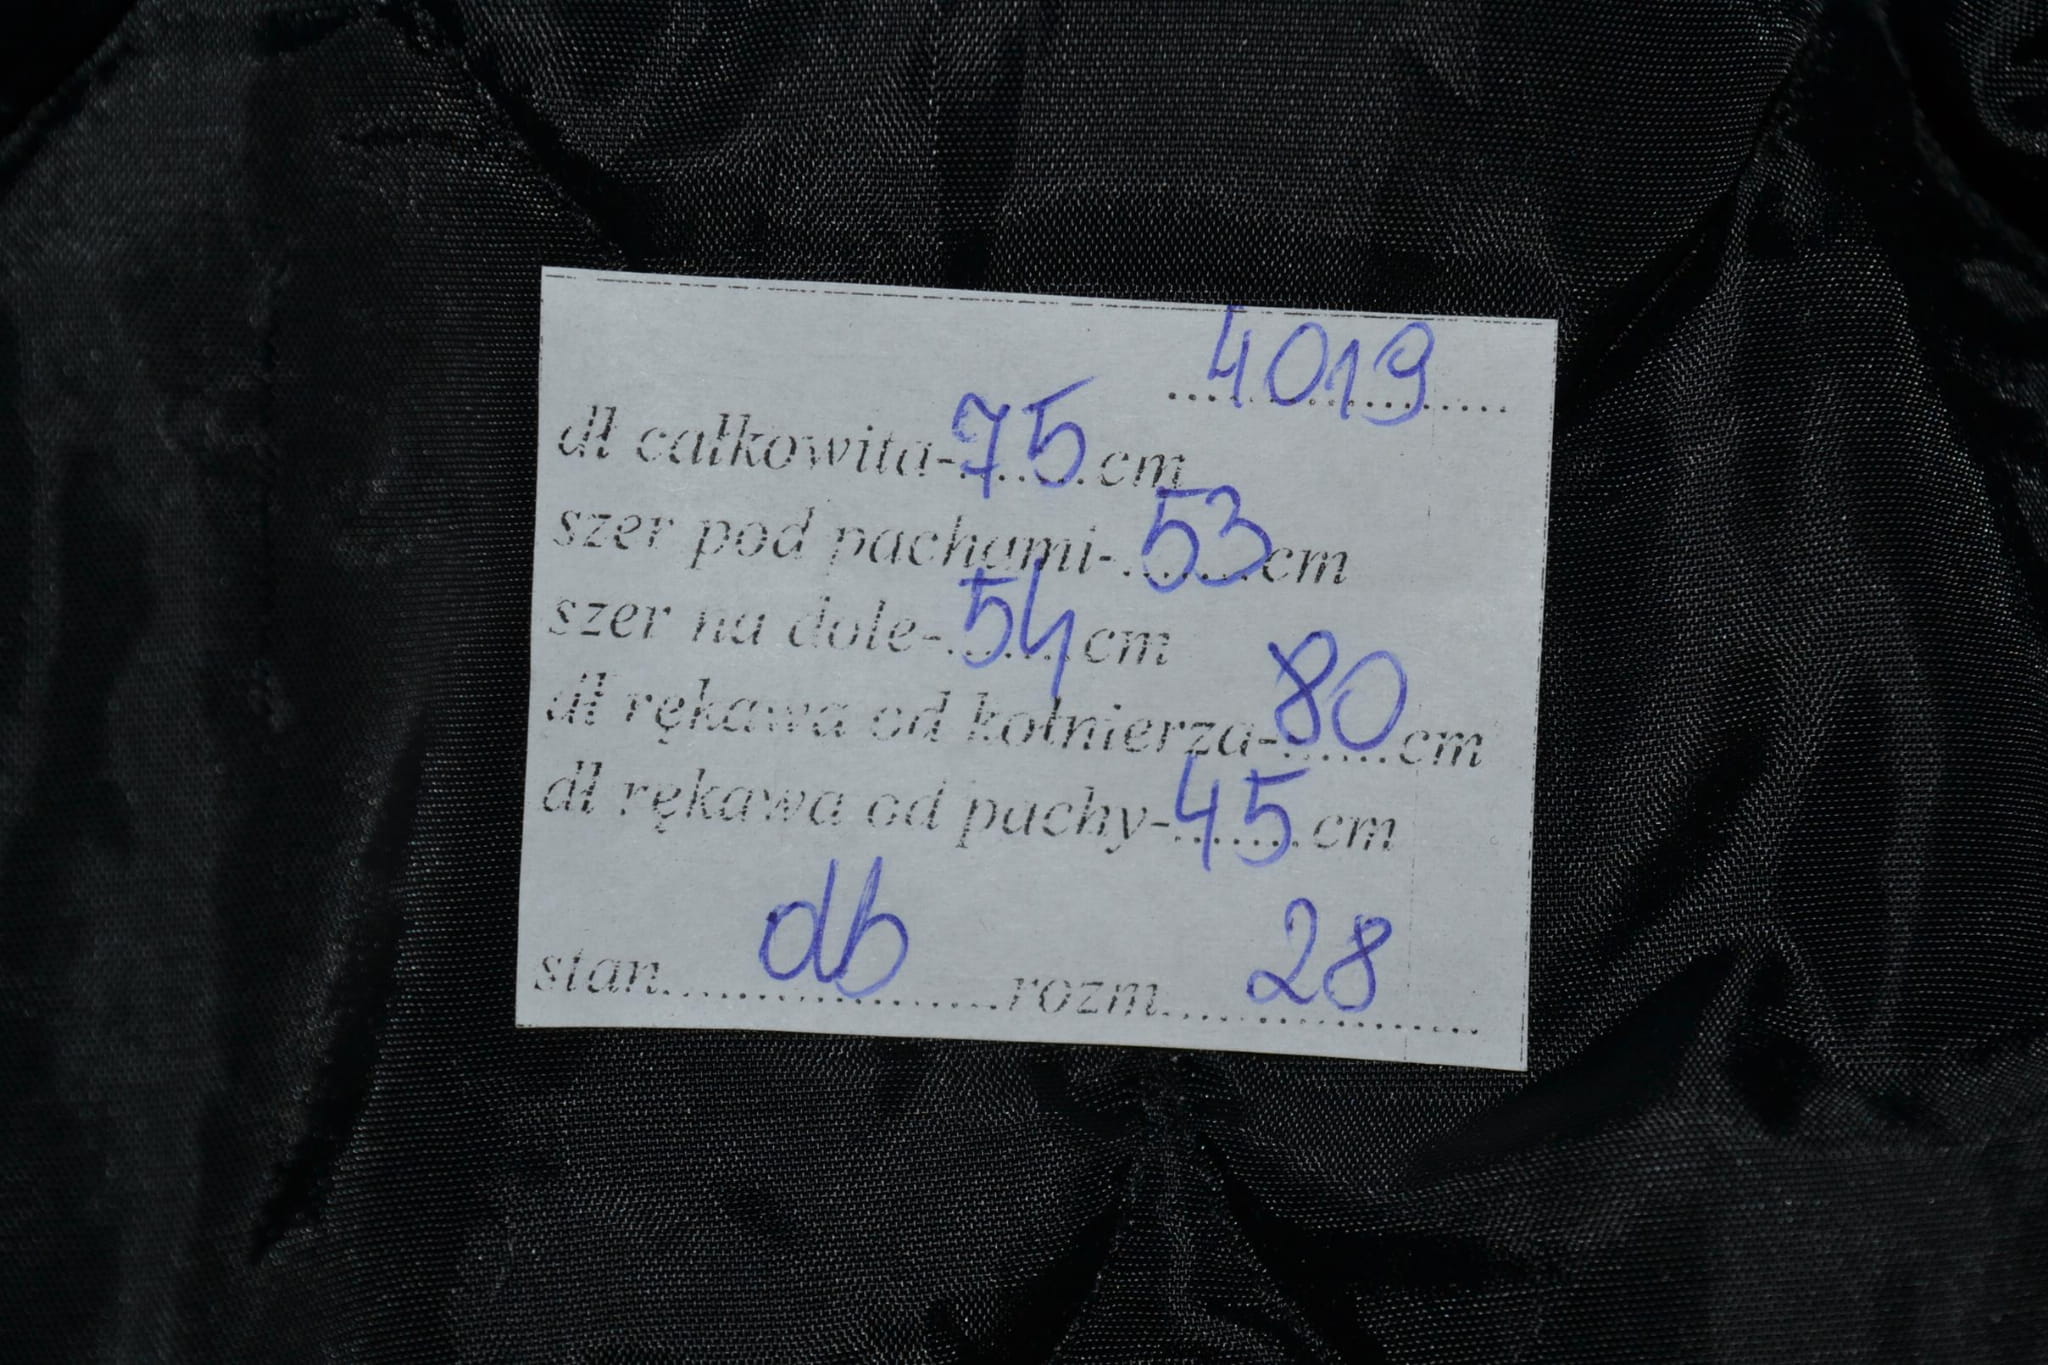 4019
dł całkowita-75cm
szer pod pachami-53cm
szer na dole-54cm
dł rękawa od kołnierza-80cm
dł rękawa od pachy-45cm
stan db rozm 28